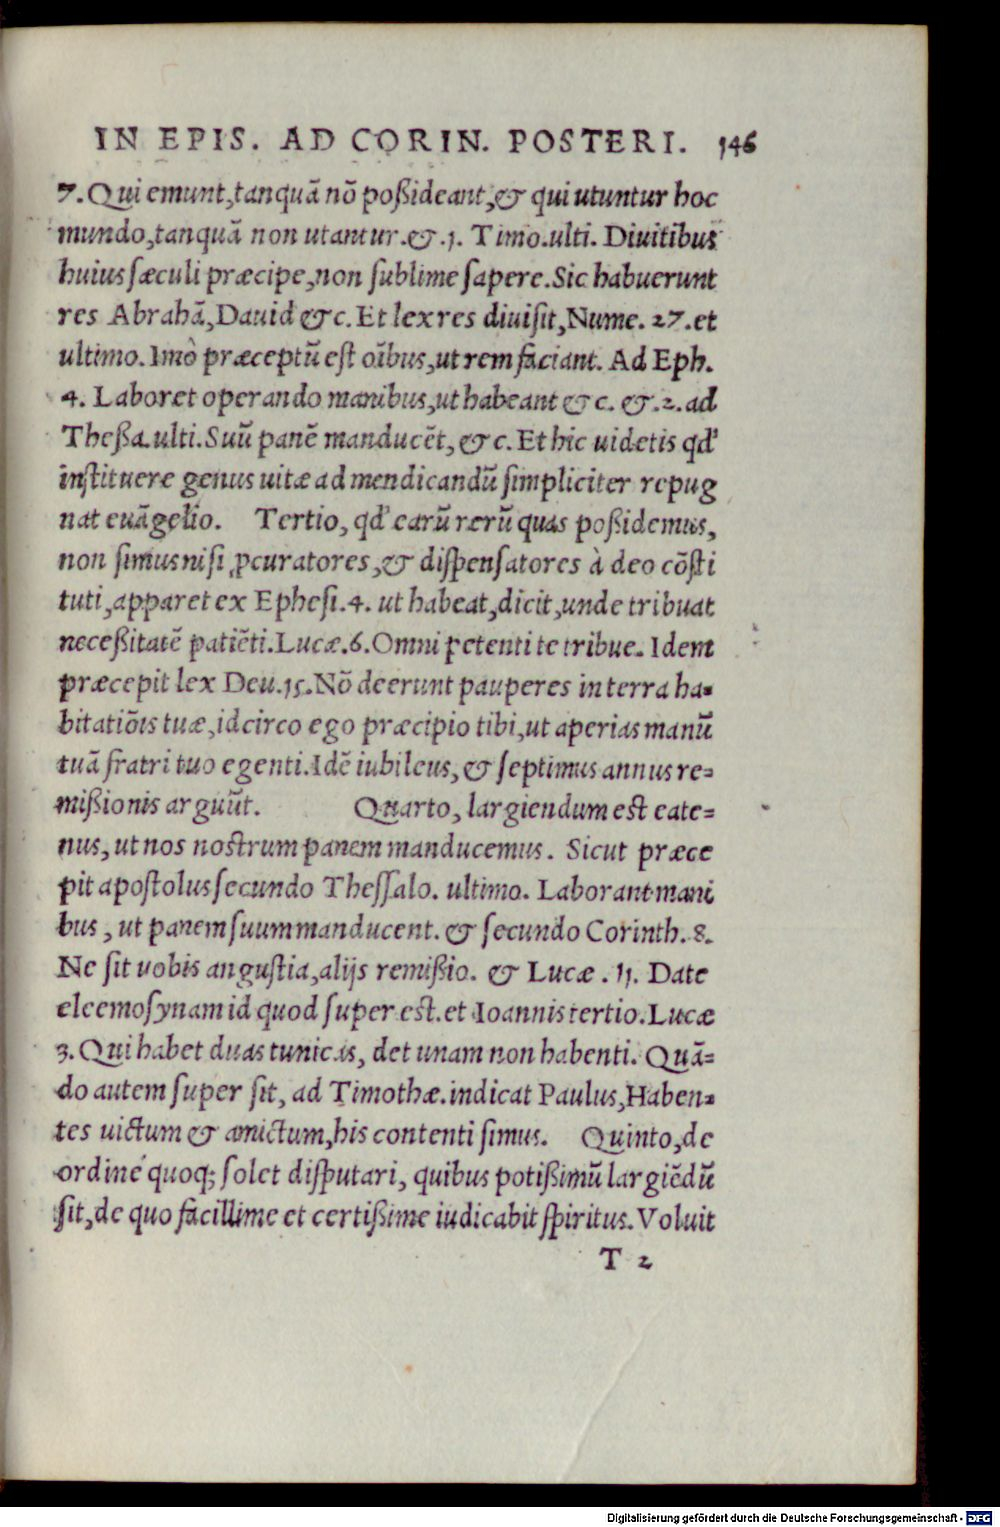 IN EPIS. AD CORIN. POSTERI. 146
7. Qui emunt, tanquā nō poßideant, & qui utuntur hoc
mundo, tanquā non utantur. & .1. Timo. ulti. Diuitibus
huius sæculi præcipe, non sublime sapere. Sic habuerunt
res Abrahā, Dauid &c. Et lex res diuisit, Nume. 27. et
ultimo. Imò præceptū est oībus, ut rem faciant. Ad Eph.
4. Laboret operando manibus, ut habeant &c. & .2. ad
Theßa. ulti. Suū panē manducēt, &c. Et hic uidetis qd'
instituere genus uitæ ad mendicandū simpliciter repug
nat euāgelio. Tertio, qd' earū rerū quas poßidemus,
non simus nisi ꝓcuratores, & dispensatores à deo cōsti
tuti, apparet ex Ephesi. 4. ut habeat, dicit, unde tribuat
neceßitatē patiēti. Lucæ. 6. Omni petenti te tribue. Idem
præcepit lex Deu. 15. Nō deerunt pauperes in terra ha-
bitatiōis tuæ, idcirco ego præcipio tibi, ut aperias manū
tuā fratri tuo egenti. Idē iubileus, & septimus annus re-
mißionis arguūt. Quarto, largiendum est eate-
nus, ut nos nostrum panem manducemus. Sicut præce
pit apostolus secundo Thessalo. ultimo. Laborant mani
bus, ut panem suum manducent. & secundo Corinth. 8.
Ne sit uobis angustia, alijs remißio. & Lucæ. 11. Date
eleemosynam id quod super est. et Ioannis tertio. Lucæ
3. Qui habet duas tunicas, det unam non habenti. Quā-
do autem super sit, ad Timothæ. indicat Paulus, Haben-
tes uictum & amictum, his contenti simus. Quinto, de
ordine quoq; solet disputari, quibus potißimū largiēdū
sit, de quo facillime et certißime iudicabit spiritus. Voluit
T 2
Digitalisierung gefördert durch die Deutsche Forschungsgemeinschaft - DFG